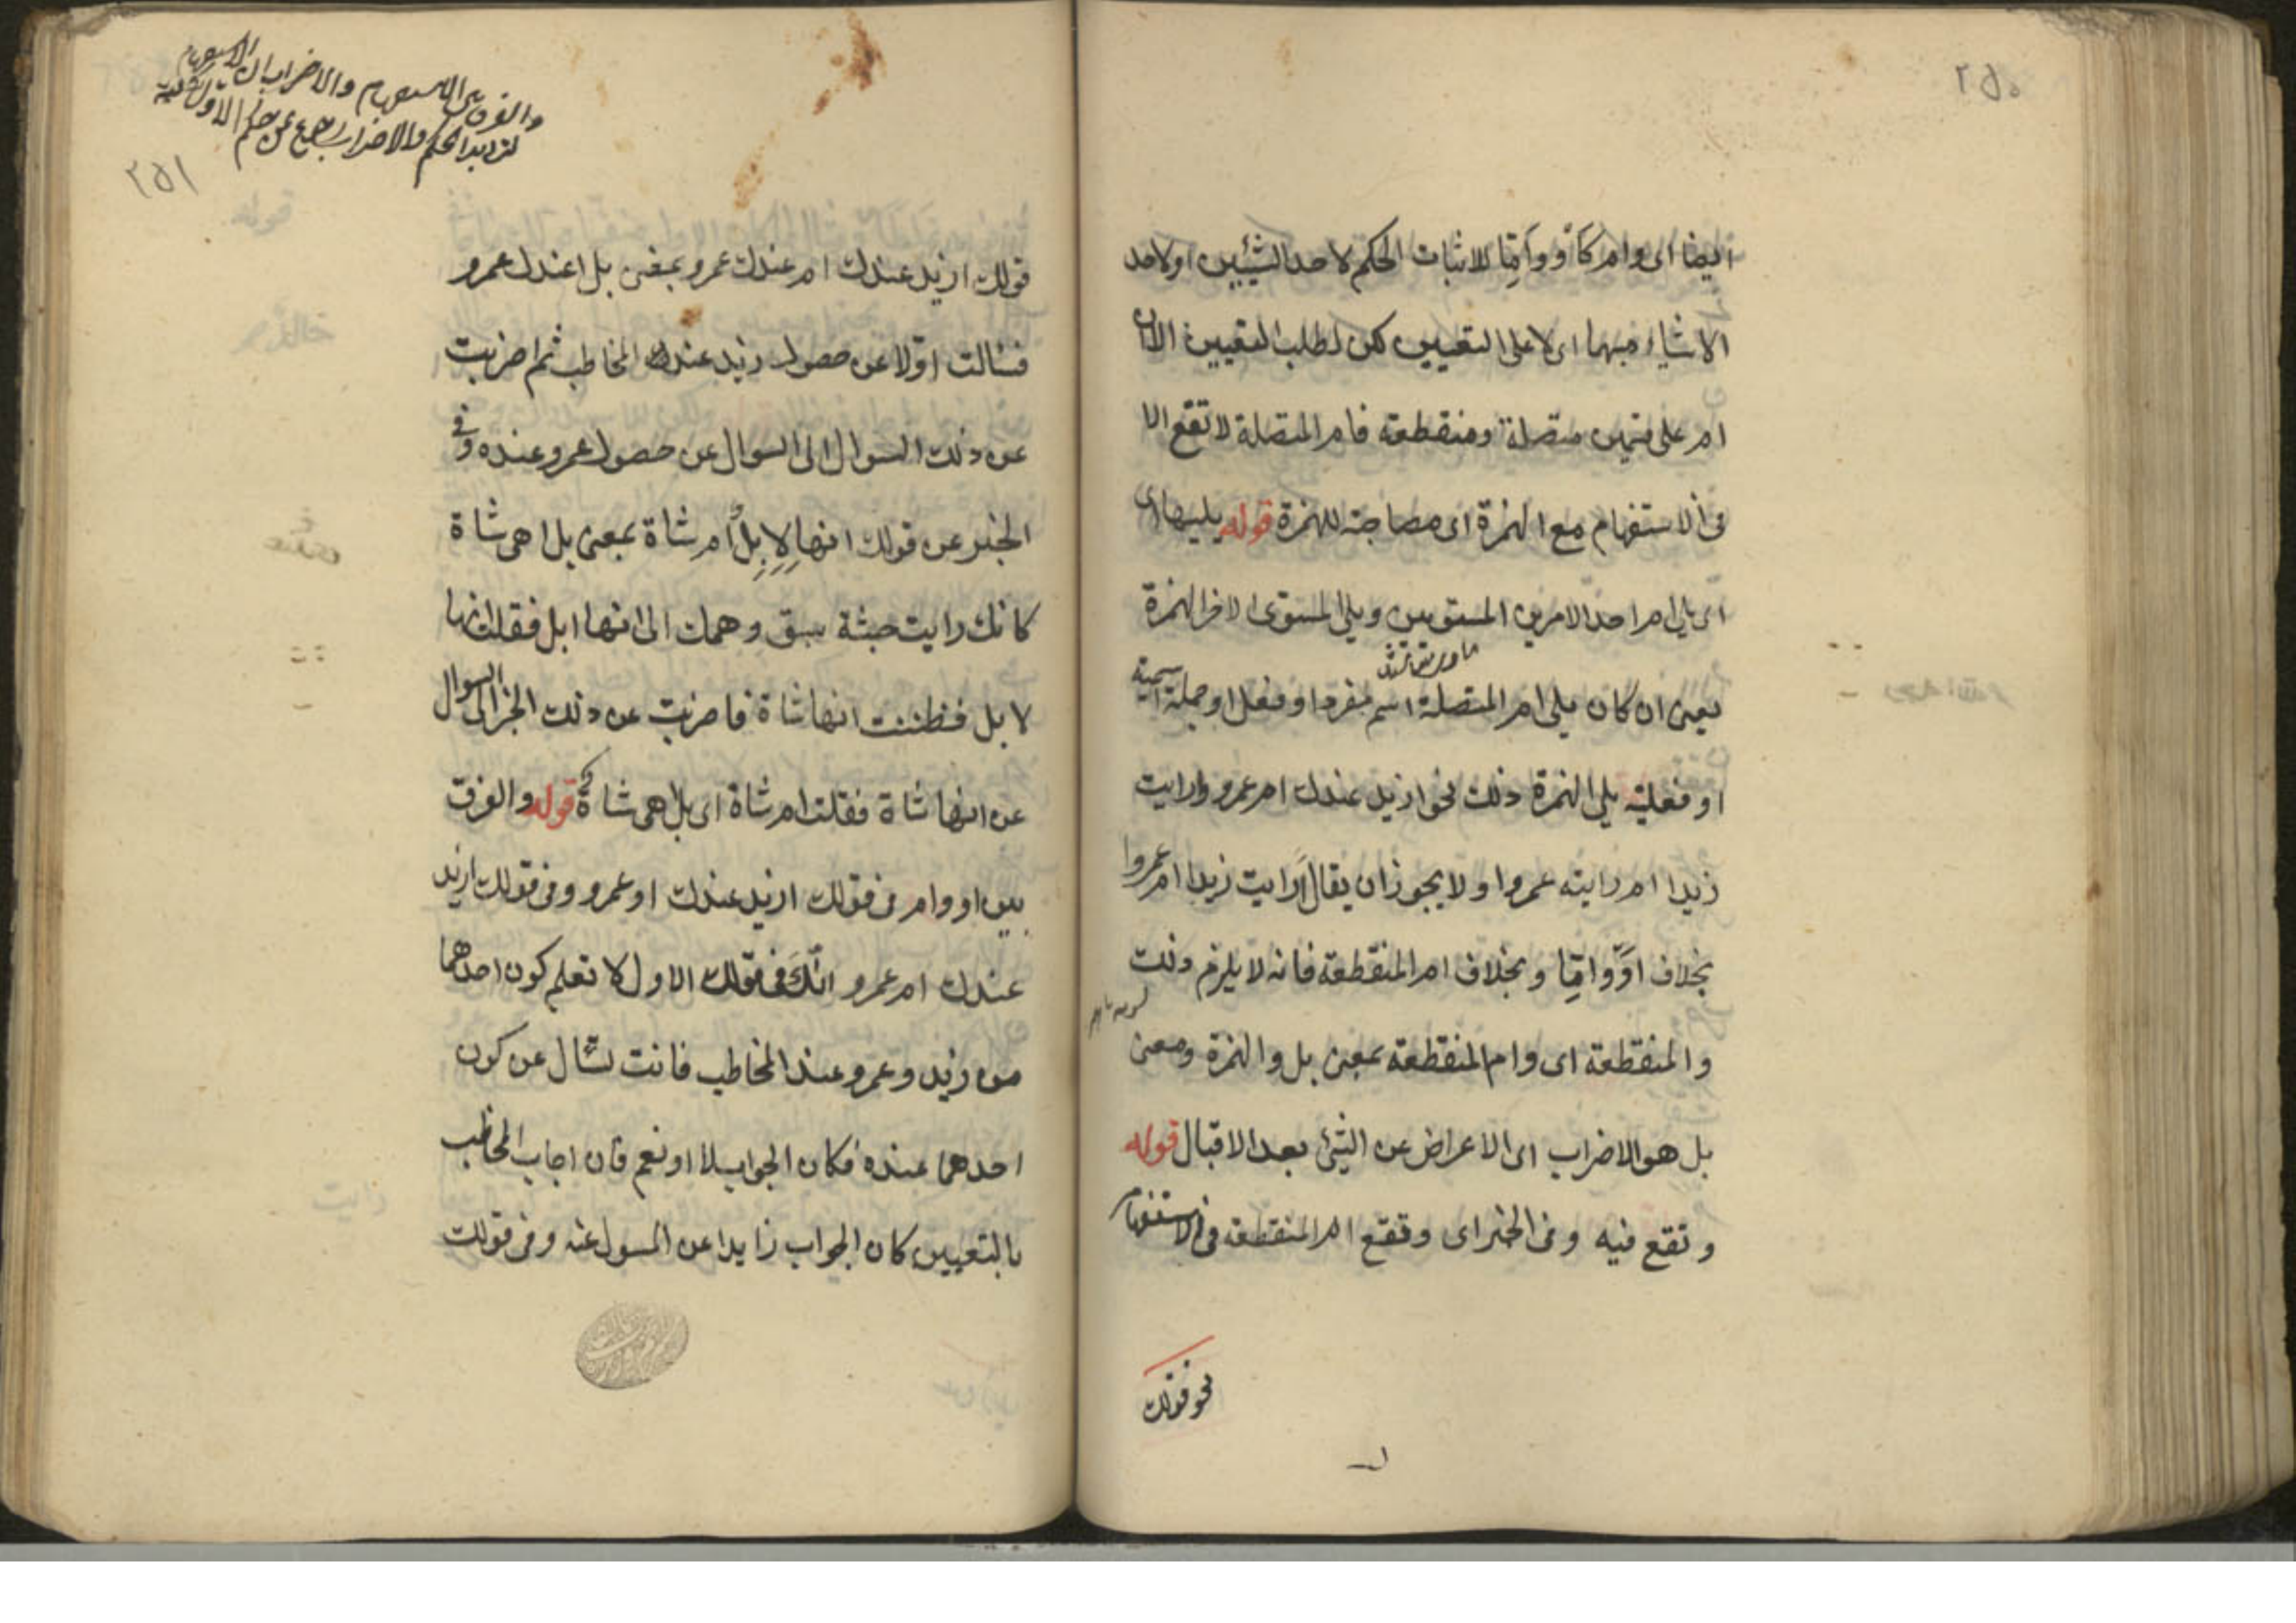 ٢٥٠
ايضا اى وام كأو وإمّا لاثبات الحكم لاحد الشيئين او لاحد
الاشياء مبهما اى لا على التعيين لكن لطلب التعيين الا ان
ام على قسمين متصلة ومنقطعة فام المتصلة لا تقع الا
فى الاستفهام مع الهمزة اى مصاحبة للهمزة قوله يليها اى
اى يلى ام احد الامرين المستويين ويلى المستوى الاخر الهمزة
يعنى ان كان يلى ام المتصلة اسم مفرد او فعل او جملة اسمية
او فعلية يلى الهمزة ذلك نحو ازيد عندك ام عمرو وارايت
زيدا ام رايته عمروا ولا يجوز ان يقال أرايت زيدا ام عمروا
بخلاف اوْ وامّا وبخلاف ام المنقطعة فانه لا يلزم ذلك
والمنقطعة اى وام المنقطعة بمعنى بل والهمزة ومعنى
بل هو الاضراب اى الاعراض عن الشئ بعد الاقبال قوله
وتقع فيه وفى الخبر اى وتقع ام المنقطعة فى الاستفهام
نحو قولك
والفرق بين الاستفهام والاضراب ان الاستفهام
لترديد الحكم والاضراب رجع عن حكم الاول
٢٥١
قولك ازيد عندك ام عندك عمرو بمعنى بل اعندك عمرو
فسالت اوّلا عن حصول زيد عند المخاطب ثم اضربت
عن ذلك السوال الى السوال عن حصول عمرو عنده وفى
الخبر عن قولك انها لإبِلٌ أم شاة بمعنى بل اهى شاة
كانك رايت جثة سبق وهمك الى انها ابل فقلت انها
لابل فظننت انها شاة فاضربت عن ذلك الخبر الى السوال
عن انها شاة فقلت ام شاة اى بل اهى شاة قوله والفرق
بين او وام فى قولك ازيد عندك او عمرو وفى قولك ازيد
عندك ام عمرو انّك فى قولك الاول لا تعلم كون احدهما
من زيد وعمرو عند المخاطب فانت تسال عن كون
احدهما عنده فكان الجواب بلا او نعم فان اجاب المخاطب
بالتعيين كان الجواب زايدا عن المسول عنه وفى قولك